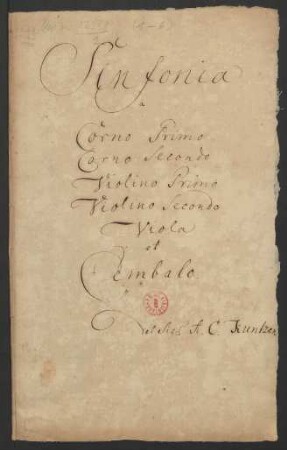 Sinfonia
a
Corno Primo
Corno Secondo
Violino Primo
Violino Secondo
Viola
et
Cembalo
del Sigr A. C. Kuntzen